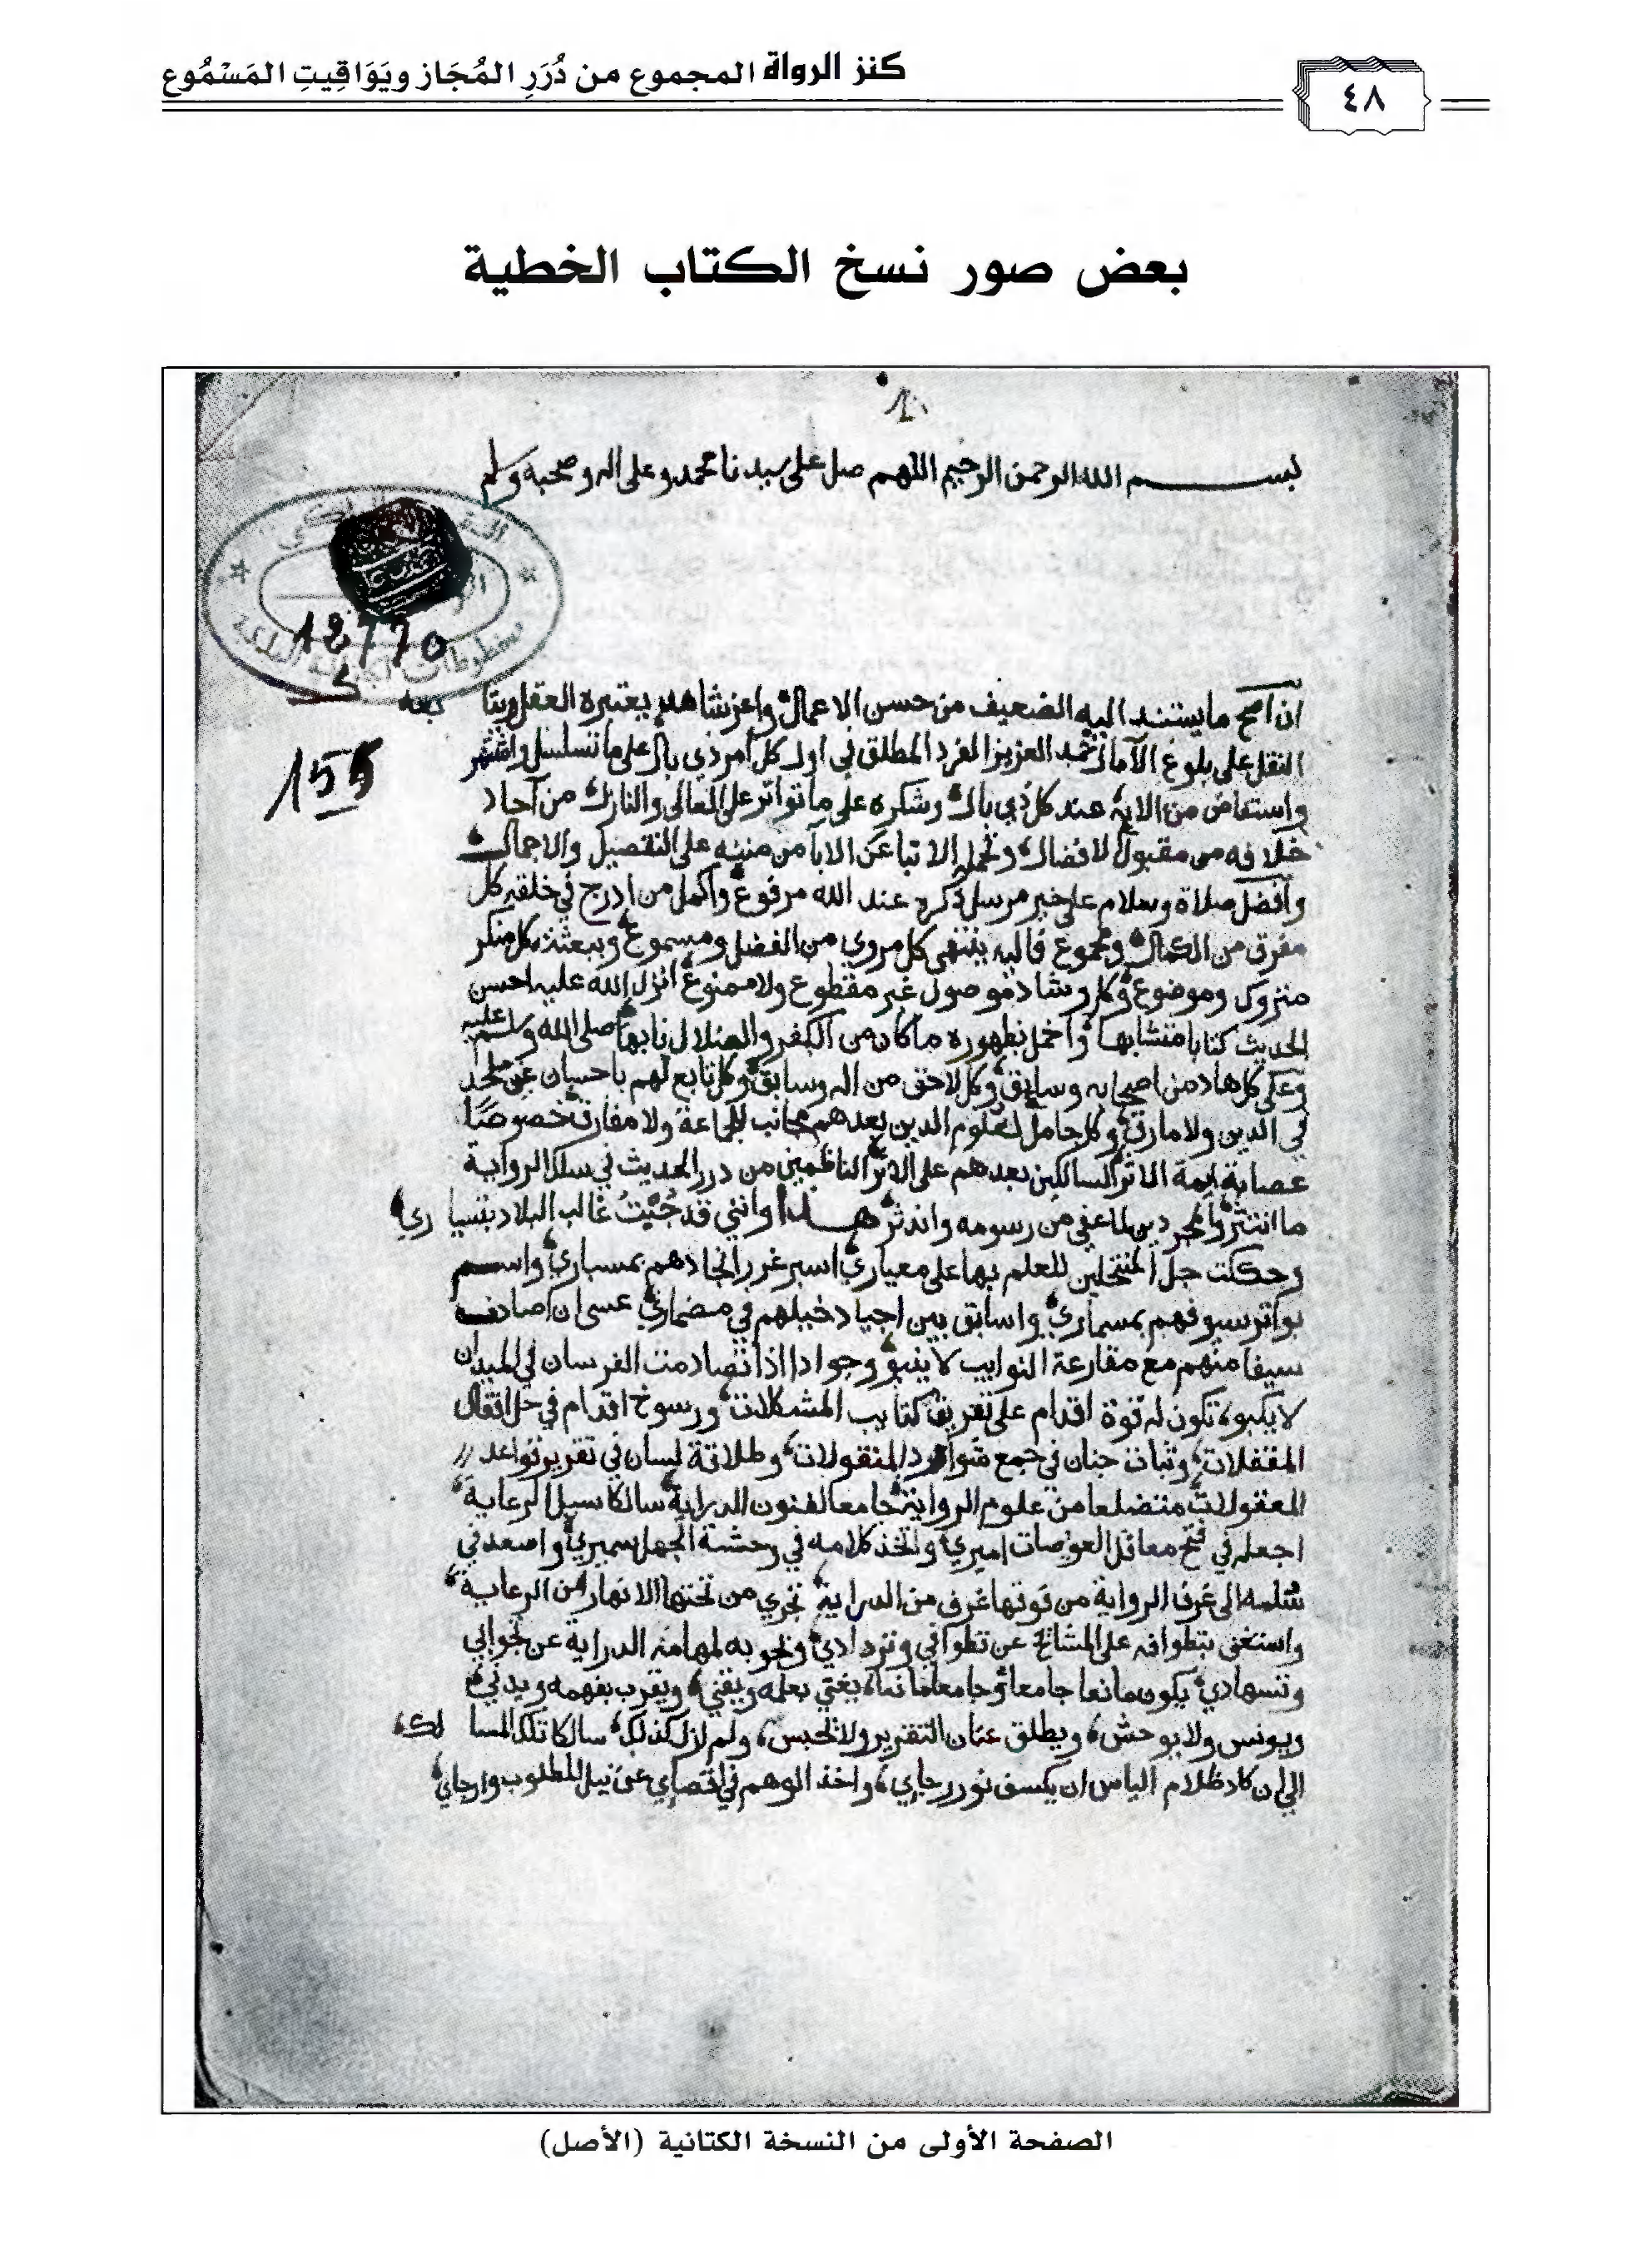 ٤٨
كنز الرواة المجموع من دُرَرِ المُجَاز ويَوَاقِيتِ المَسْمُوع
بعض صور نسخ الكتاب الخطية
بسم الله الرحمن الرحيم اللهم صل على سيدنا محمد وعلى اله وصحبه وسلم
12770
ان اصح ما يستند اليه الضعيف من حسن الاعمال واعز شاهد يعتبره العقل
155
النقل على بلوغ الآمال حمد العزيز الفرد المطلق في اول كل امر ذي بال على ما تسلسل واشتهر
واستفاض من الايه عند كل ذي بال وشكره على ما تواتر على المعالى والنازل من آحاد
من مقبول الافضال من مننه على التفصيل والاجمال
وافضل صلاة وسلام على خير مرسل ذكره عند الله مرفوع واكمل من ادرج في خلقه كل
مفرق من الكمال ومجموع فاليه ينتهى كل مروي من الفضل ومسموع وببعثته كل منكر
متروك وموضوع وكل وشاذ موصول غير مقطوع ولا ممنوع انزل الله عليه احسن
الحديث كتابا متشابها واخمل بظهوره ما كان من الكفر والضلال نابها صلى الله وسلم عليه
وعلى كل هاد من اصحابه وسابق وكل لاحق من اله وسابق وكل تابع لهم باحسان غير ملحد
في الدين ولا مارق وكل حامل لعلوم الدين بعدهم مجانب للجماعة ولا مفارق خصوصًا
عصابة ايمة الاثر السالكين بعدهم على الاثر الناظمين من درر الحديث في سلك الرواية
ما انتثر والمجددين لما عفى من رسومه واندثر هـذا وانني قد جُبْتُ غالب البلاد بتسياري
وحككت جل المنتحلين للعلم بها على معياري اسبر غرر انجادهم بمسباري واسم
بواتر سيوفهم بمسماري واسابق بين اجياد خيلهم في مضماري عسى ان اصادف
سيفا منهم مع مقارعة النوايب لا ينبو وجوادا اذا تصادمت الفرسان في الميدان
لا يكبو تكون له قوة اقدام على تفريق كتايب المشكلات ورسوخ اقدام في حل اقفال
المقفلات وثبات جنان في جمع شوارد المنقولات وطلاقة لسان في تقرير قواعد
المعقولات متضلعا من علوم الرواية جامعا لفنون الدراية سالكا سبيل الرعاية
اجعله في فتح معاقل العويصات اميري واتخذ كلامه في وحشة الجهل سميري واصعد في
سُلمه الى غرف الرواية من فوقها غرف من الدراية تجري من تحتها الانهار من الرعاية
واستغنى بتطوافه على المشائخ عن تطوافي وتردادي وبجوبه لمهامه الدراية عن تجوالي
وتسهادي يكون مانعا جامعا وجامعا مانعا يغني بعلمه ويقني ويقرب بفهمه ويدني
ويونس ولا يوحش ويطلق عنان التقرير ولا يحبس ولم ازل كذلك سالكا تلك المسالك
الى ان كاد ظلام الياس ان يكسف نور رجاي واخذ الوهم في اقصاي عن نيل المطلوب وارجاي
الصفحة الأولى من النسخة الكتانية (الأصل)